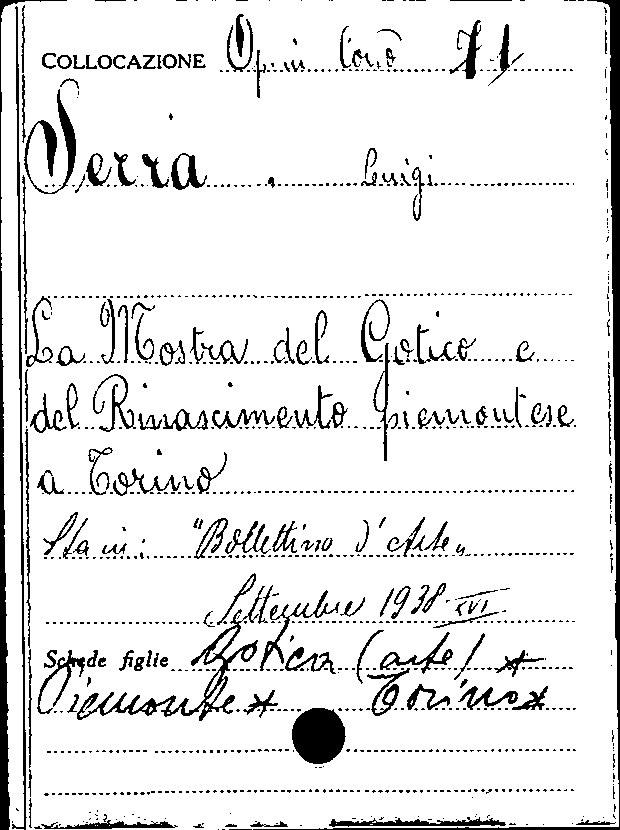 COLLOCAZIONE Op. in Coro 71
Serra. Luigi
La Mostra del Gotico e
del Rinascimento piemontese
a Torino
Sta in: "Bollettino d'Arte„
Settembre 1938-XVI
Schede figlie Gotica (arte) *
Piemonte * Torino *